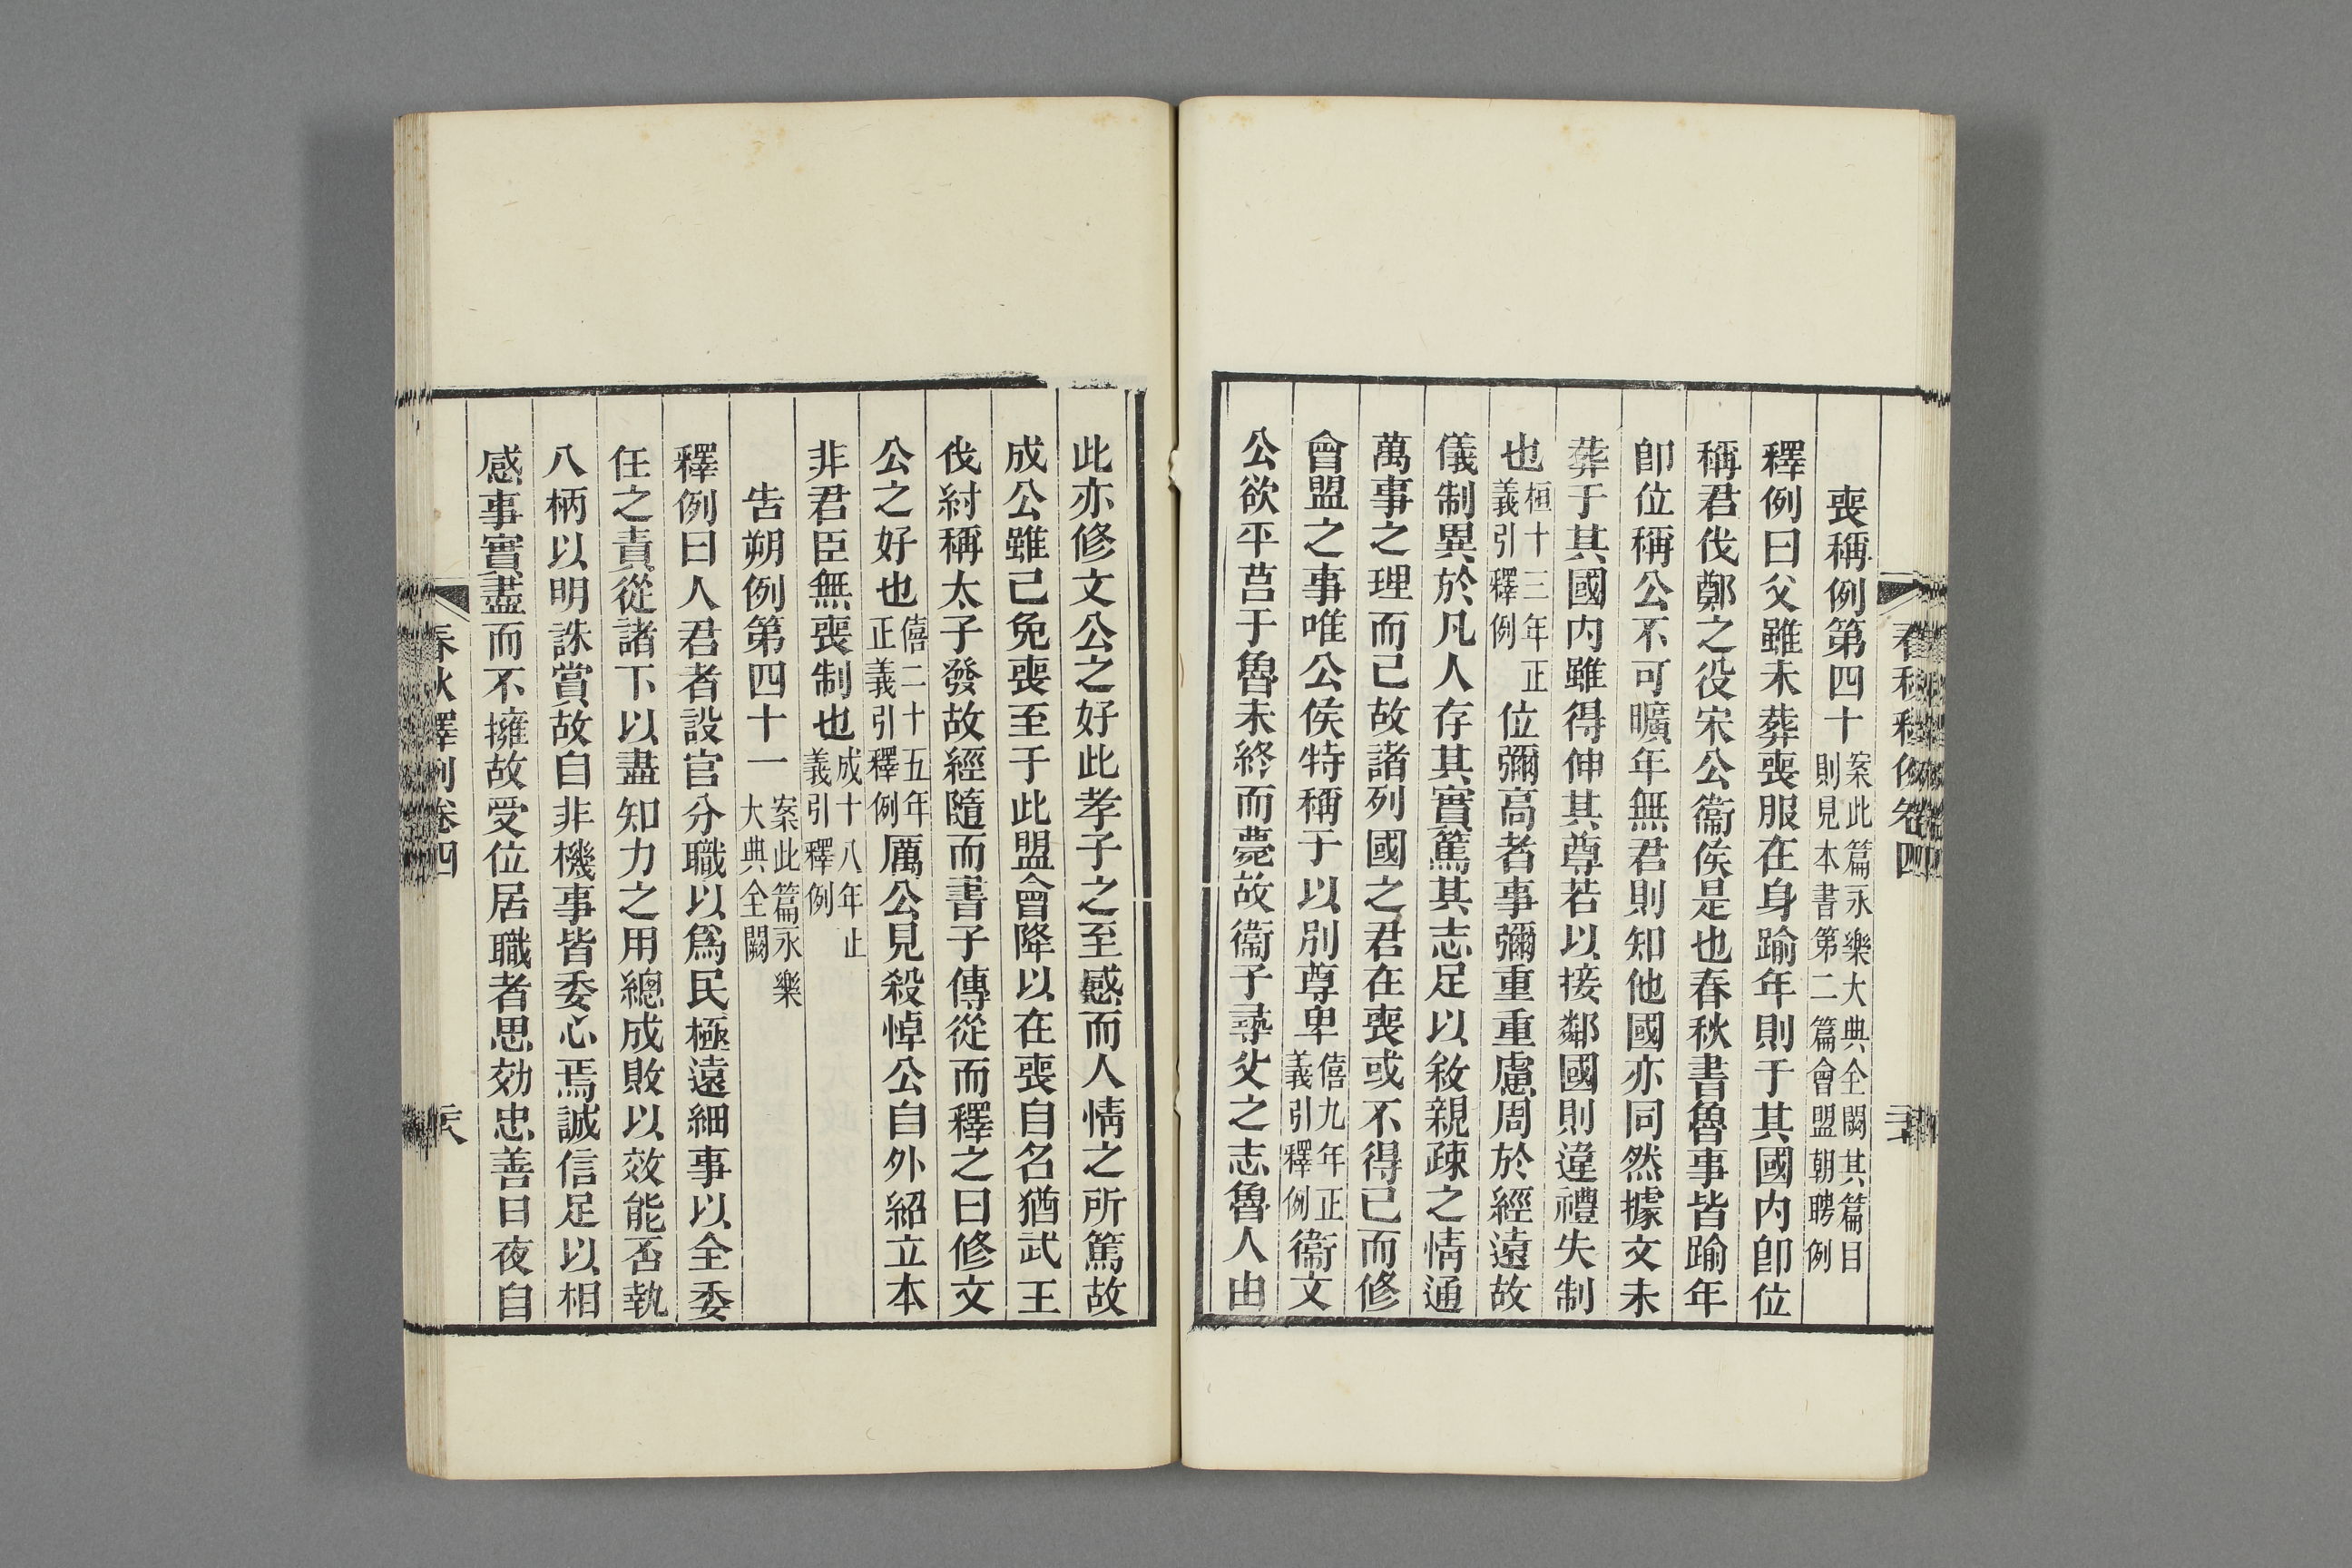 喪稱例第四十案此篇永樂大典全闕其篇目則見本書第二篇會盟朝聘例
釋例曰父雖未葬喪服在身踰年則于其國内卽位
稱君伐鄭之役宋公衞侯是也春秋書魯事皆踰年
卽位稱公不可曠年無君則知他國亦同然據文未
葬于其國内雖得伸其尊若以接鄰國則違禮失制
也桓十三年正義引釋例位彌高者事彌重重慮周於經遠故
儀制異於凡人存其實篤其志足以敘親疎之情通
萬事之理而已故諸列國之君在喪或不得已而修
會盟之事唯公侯特稱子以別尊卑僖九年正義引釋例衞文
公欲平莒于魯未終而薨故衞子尋父之志魯人由
此亦修文公之好此孝子之至感而人情之所篤故
成公雖已免喪至于此盟會降以在喪自名猶武王
伐紂稱太子發故經隨而書子傳從而釋之曰修文
公之好也僖二十五年正義引釋例厲公見殺悼公自外紹立本
非君臣無喪制也成十八年正義引釋例
告朔例第四十一案此篇永樂大典全闕
釋例曰人君者設官分職以爲民極遠細事以全委
任之責從諸下以盡知力之用總成敗以效能否執
八柄以明誅賞故自非機事皆委心焉誠信足以相
感事實盡而不擁故受位居職者思効忠善日夜自
春秋釋例卷四